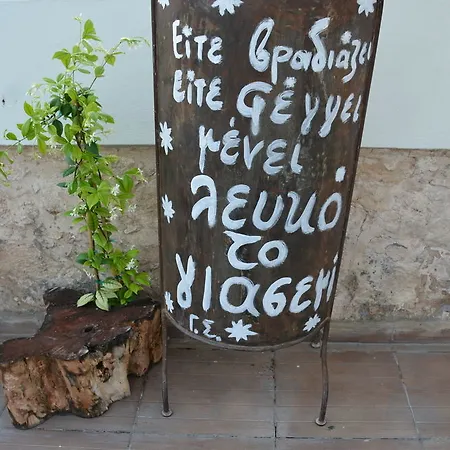 είτε βραδιάζει
είτε φέγγει
μένει
λευκό
το
γιασεμί
Γ.Σ.